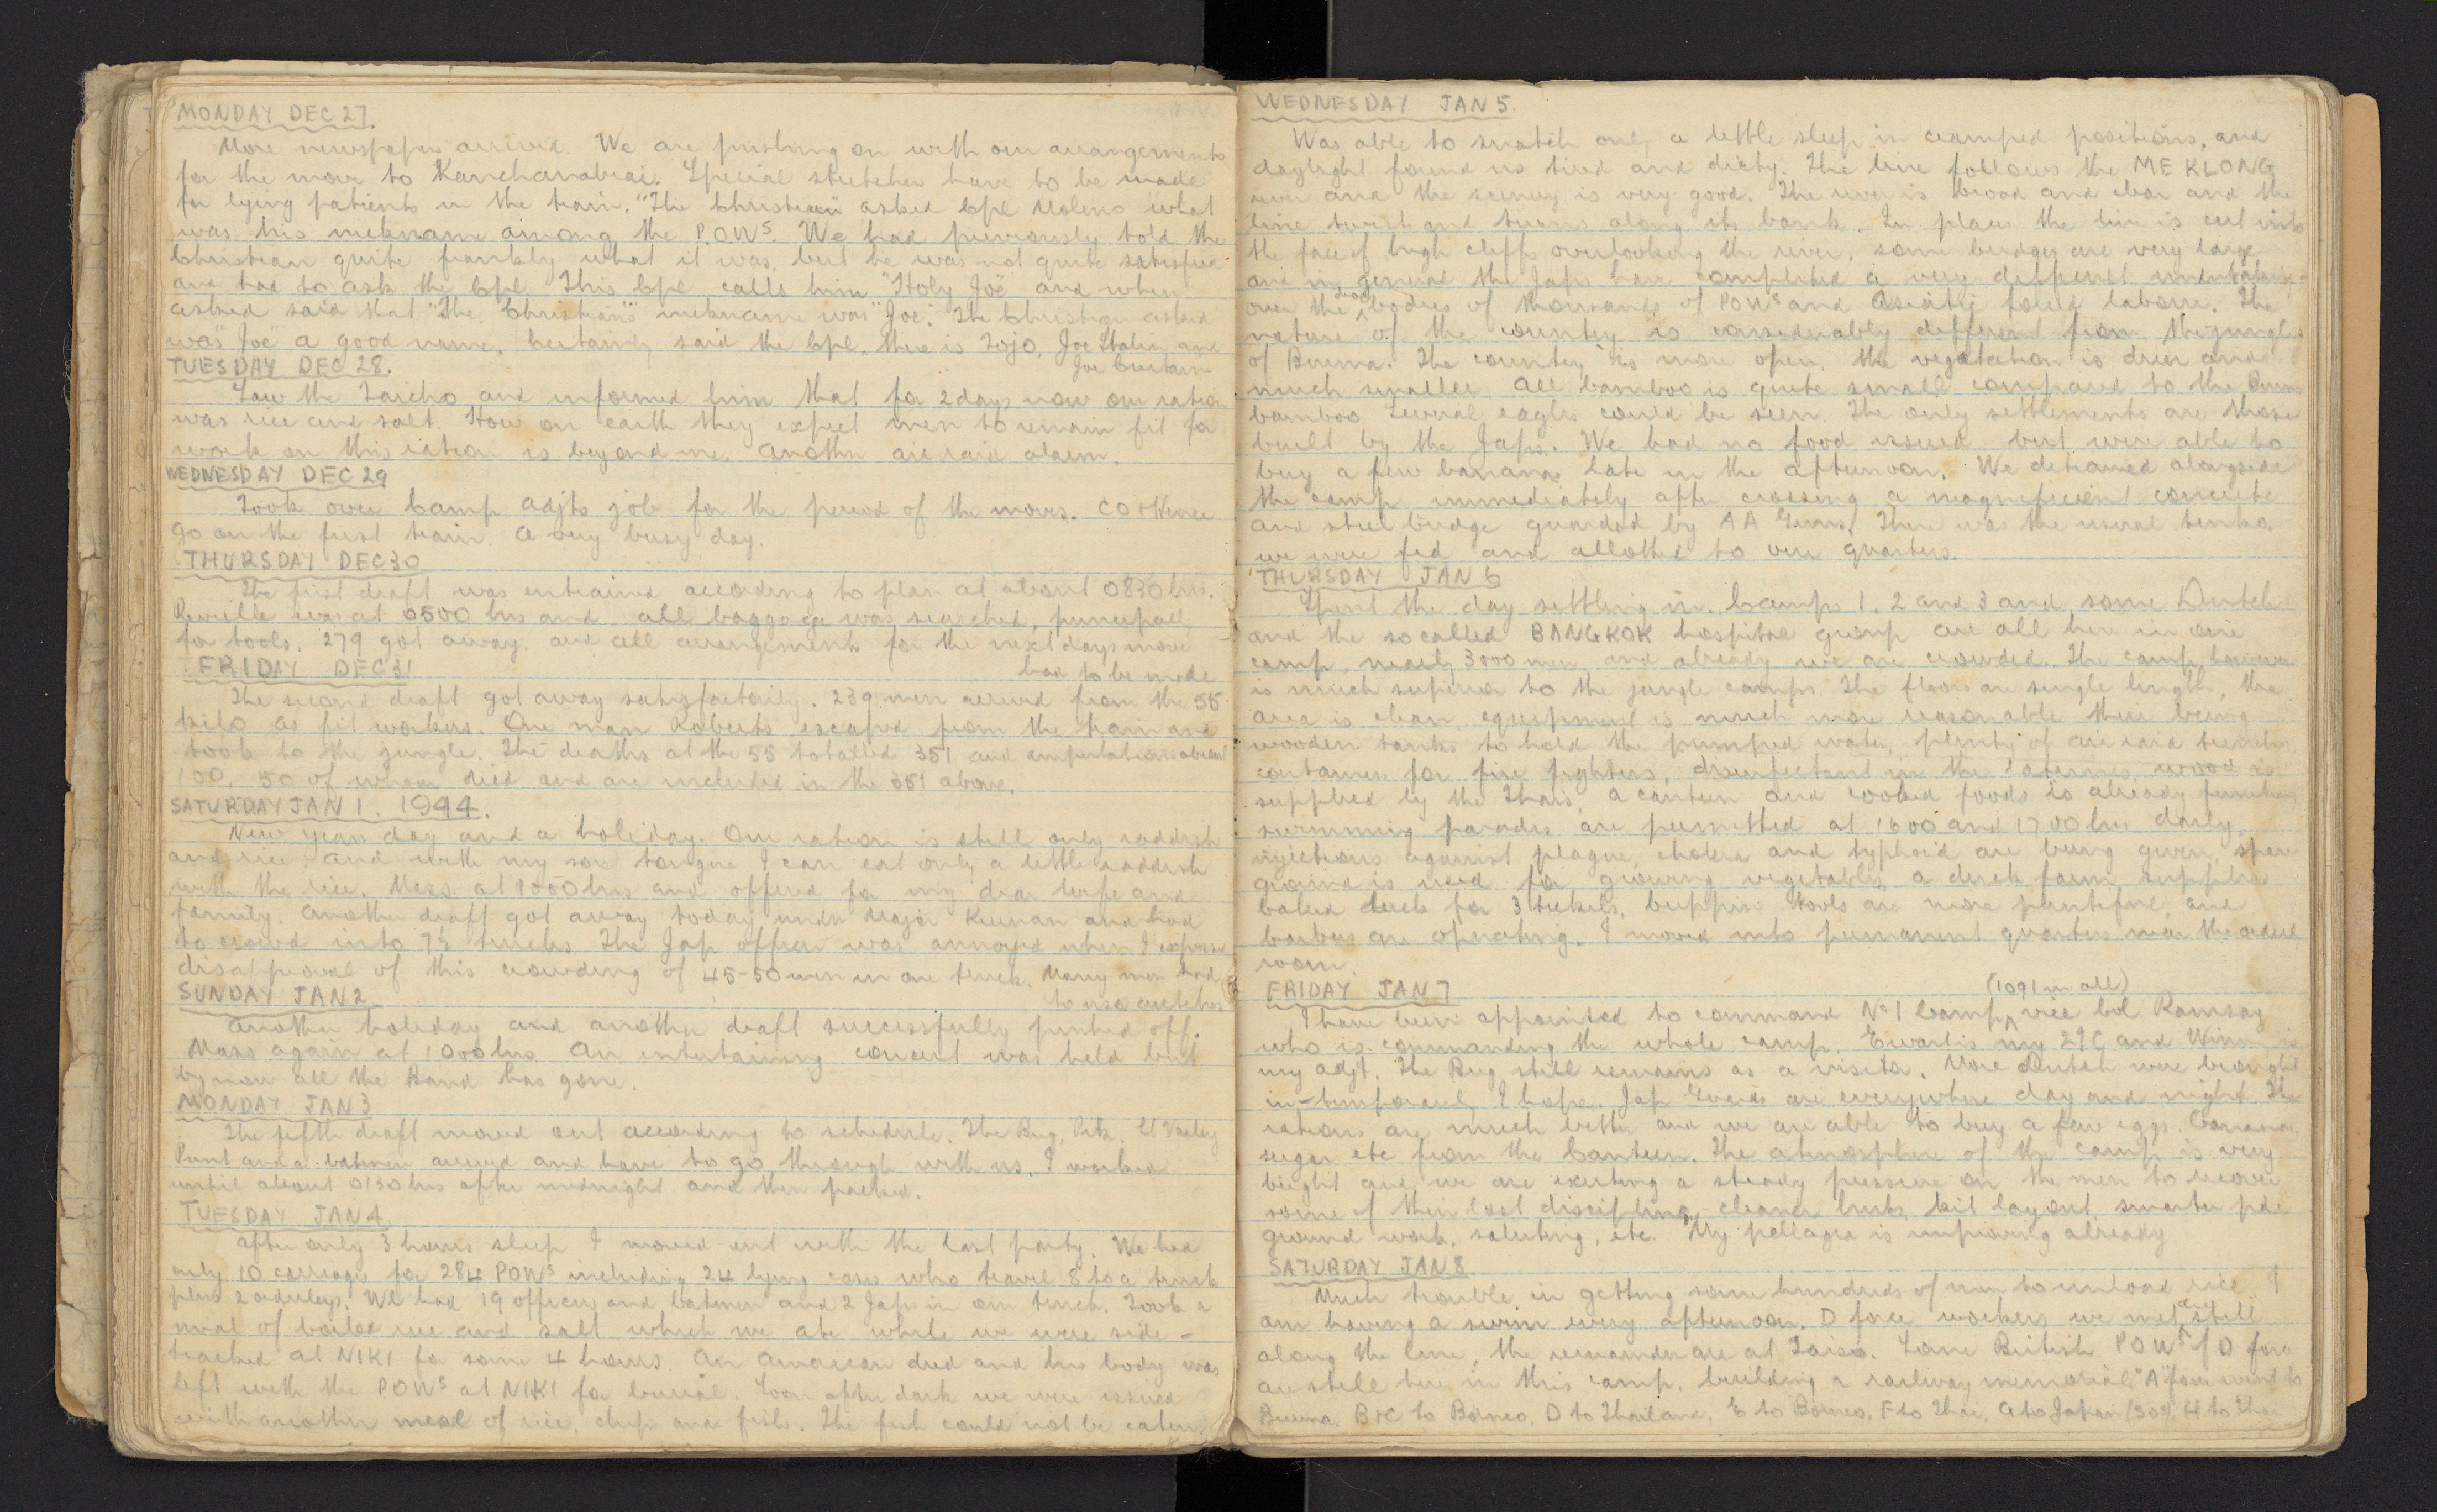 MONDAY DEC 27.
More newspapers arrived. We are pushing on with our arrangements
for the move to Kanchanaburai. Special stretcher have to be made
for lying patients in the train. "The Christian" asked Cpl Moleno what
was his nickname among the P.O.W^s. We had previously told the
Christian quite frankly what it was, but he was not quite satisfied
and had to ask the Cpl. This Cpl calls him "Holy Joe" and when
asked said that "The Christian's" nickname was "Joe". The Christian asked
was "Joe" a good name. Certainly said the Cpl, there is Tojo, Joe Stalin, and
Joe
TUESDAY DEC 28.
Saw the Taicho and informed him that for 2 days now our ration
was rice and salt. How on earth they expect men to remain fit for
work on this ration is beyond me. Another air raid alarm.
WEDNESDAY DEC 29
Took over Camp Adjts job for the period of the moves. CO + Hence
go on the first train. A very busy day.
THURSDAY DEC 30
The first draft was entrained according to plan at about 0830 hrs.
Reveille was at 0500 hrs and all baggage was searched, principally
for tools. 279 got away. and all arrangements for the next days move
had to be made
FRIDAY DEC 31
The second draft got away satisfactorily. 239 men arrived from the 55
kilo as fit workers. One man Roberts escaped from the train and
took to the jungle. The deaths at the 55 totalled 351 and amputations about
100, 50 of whom died and are included in the 351 above.
SATURDAY JAN 1. 1944.
New years day and a holiday. Our ration is still only raddish
and rice and with my sore tongue I can eat only a little raddish
with the rice. Mass at 1000 hrs and offered for my dear wife and
family. Another draft got away today under Major Keenan and had
to crowd into 7½ trucks. The Jap officer was annoyed when I expressed
disapproval of this crowding of 45-50 men in one truck. Many men had
to use crutches
SUNDAY JAN 2
Another holiday and another draft successfully pushed off.
Mass again at 1000 hrs. An entertaining concert was held but
by now all the Band has gone.
MONDAY JAN 3
The fifth draft moved out according to schedule. The Brig, Pitt, Lt
Punt and a batmen arrived and have to go through with us. I worked
until about 0130 hrs after midnight and then packed.
TUESDAY JAN 4
After only 3 hours sleep I moved out with the last party. We had
only 10 carriages for 284 POW^s including 24 lying cases who travel 8 to a truck
plus 2 orderlys. We had 19 officers and batmen and 2 Japs in our truck. Took a
meal of boiled rice and salt which we ate while we were side-
tracked at NIKI for some 4 hours. An American died and his body was
left with the POW^s at NIKI for burial. Soon after dark we were issued
with another meal of rice, chip and fish. The fish could not be eaten.
WEDNESDAY JAN 5.
Was able to snatch only a little sleep in cramped positions, and
daylight found us tired and dirty. The line follows the ME KLONG
river and the scenery is very good. The river is broad and clear and the
line twists and turns along its bank. In places the line is cut into
the face of high cliffs overlooking the river, some bridges are very large
and in general the Japs have completed a very difficult undertaking
over the dead bodies of thousands of POW^s and Asiatic forced labour. The
nature of the country is considerably different from the jungles
of Burma. The country is more open, the vegetation is drier and
much smaller. All bamboo is quite small compared to the Burma
bamboo. Several eagles could be seen. The only settlements are those
built by the Japs. We had no food issued but were able to
buy a few bananas late in the afternoon. We detrained alongside
the camp immediately after crossing a magnificient concrete
and steel bridge guarded by A A Guns. There was the usual tenko,
we were fed and allotted to our quarters.
THURSDAY JAN 6
Spent the day settling in. Camps 1, 2 and 3 and some Dutch
and the so called BANGKOK hospital group are all here in one
camp, nearly 3000 men and already we are crowded. The camp however
is much superior to the jungle camps. The floors are single length, the
area is clean, equipment is much more reasonable there being
wooden tanks to hold the pumped water, plenty of air raid trenches
containers for fire fighters, disinfectant in the latrines, wood is
supplied by the Thais, a canteen and cooked foods is already
swimming parades are permitted at 1600 and 1700 hrs daily,
injections against plague, cholera and typhoid are being given, spare
ground is used for growing vegetables, a duck farm supplies
baked duck for 3 tickels, cuppin tools are more plentiful, and
barbers are operating. I moved into permanent quarters near the orderly
room.
FRIDAY JAN 7
(1091 in all)
I have been appointed to command N^o 1 Camp vice Col Ramsay
who is commanding the whole camp. Ewart is my 2IC and Winn is
my adjt. The Brig still remains as a visitor. More Dutch were brought
in – temporarily I hope. Jap Guards are everywhere day and night. The
rations are much better and we are able to buy a few eggs. bananas
sugar etc from the Canteen. The atmosphere of the camp is very
bright and we are exerting a steady pressure on the men to recover
some of their lost discipline, cleaner huts, kit layout, smarter pde
ground work, saluting, etc. My pellagra is improving already
SATURDAY JAN 8
Much trouble in getting some hundreds of men to unload rice. I
am having a swim every afternoon. D force workers we met are still
along the line, the remainder are at Tarsao. Some British POW^s of D force
are still here in this camp, building a railway memorial. "A" force went to
Burma. B+C to Borneo, D to Thailand, E to Borneo, F to Thai, G to Japan (300), H to Thai